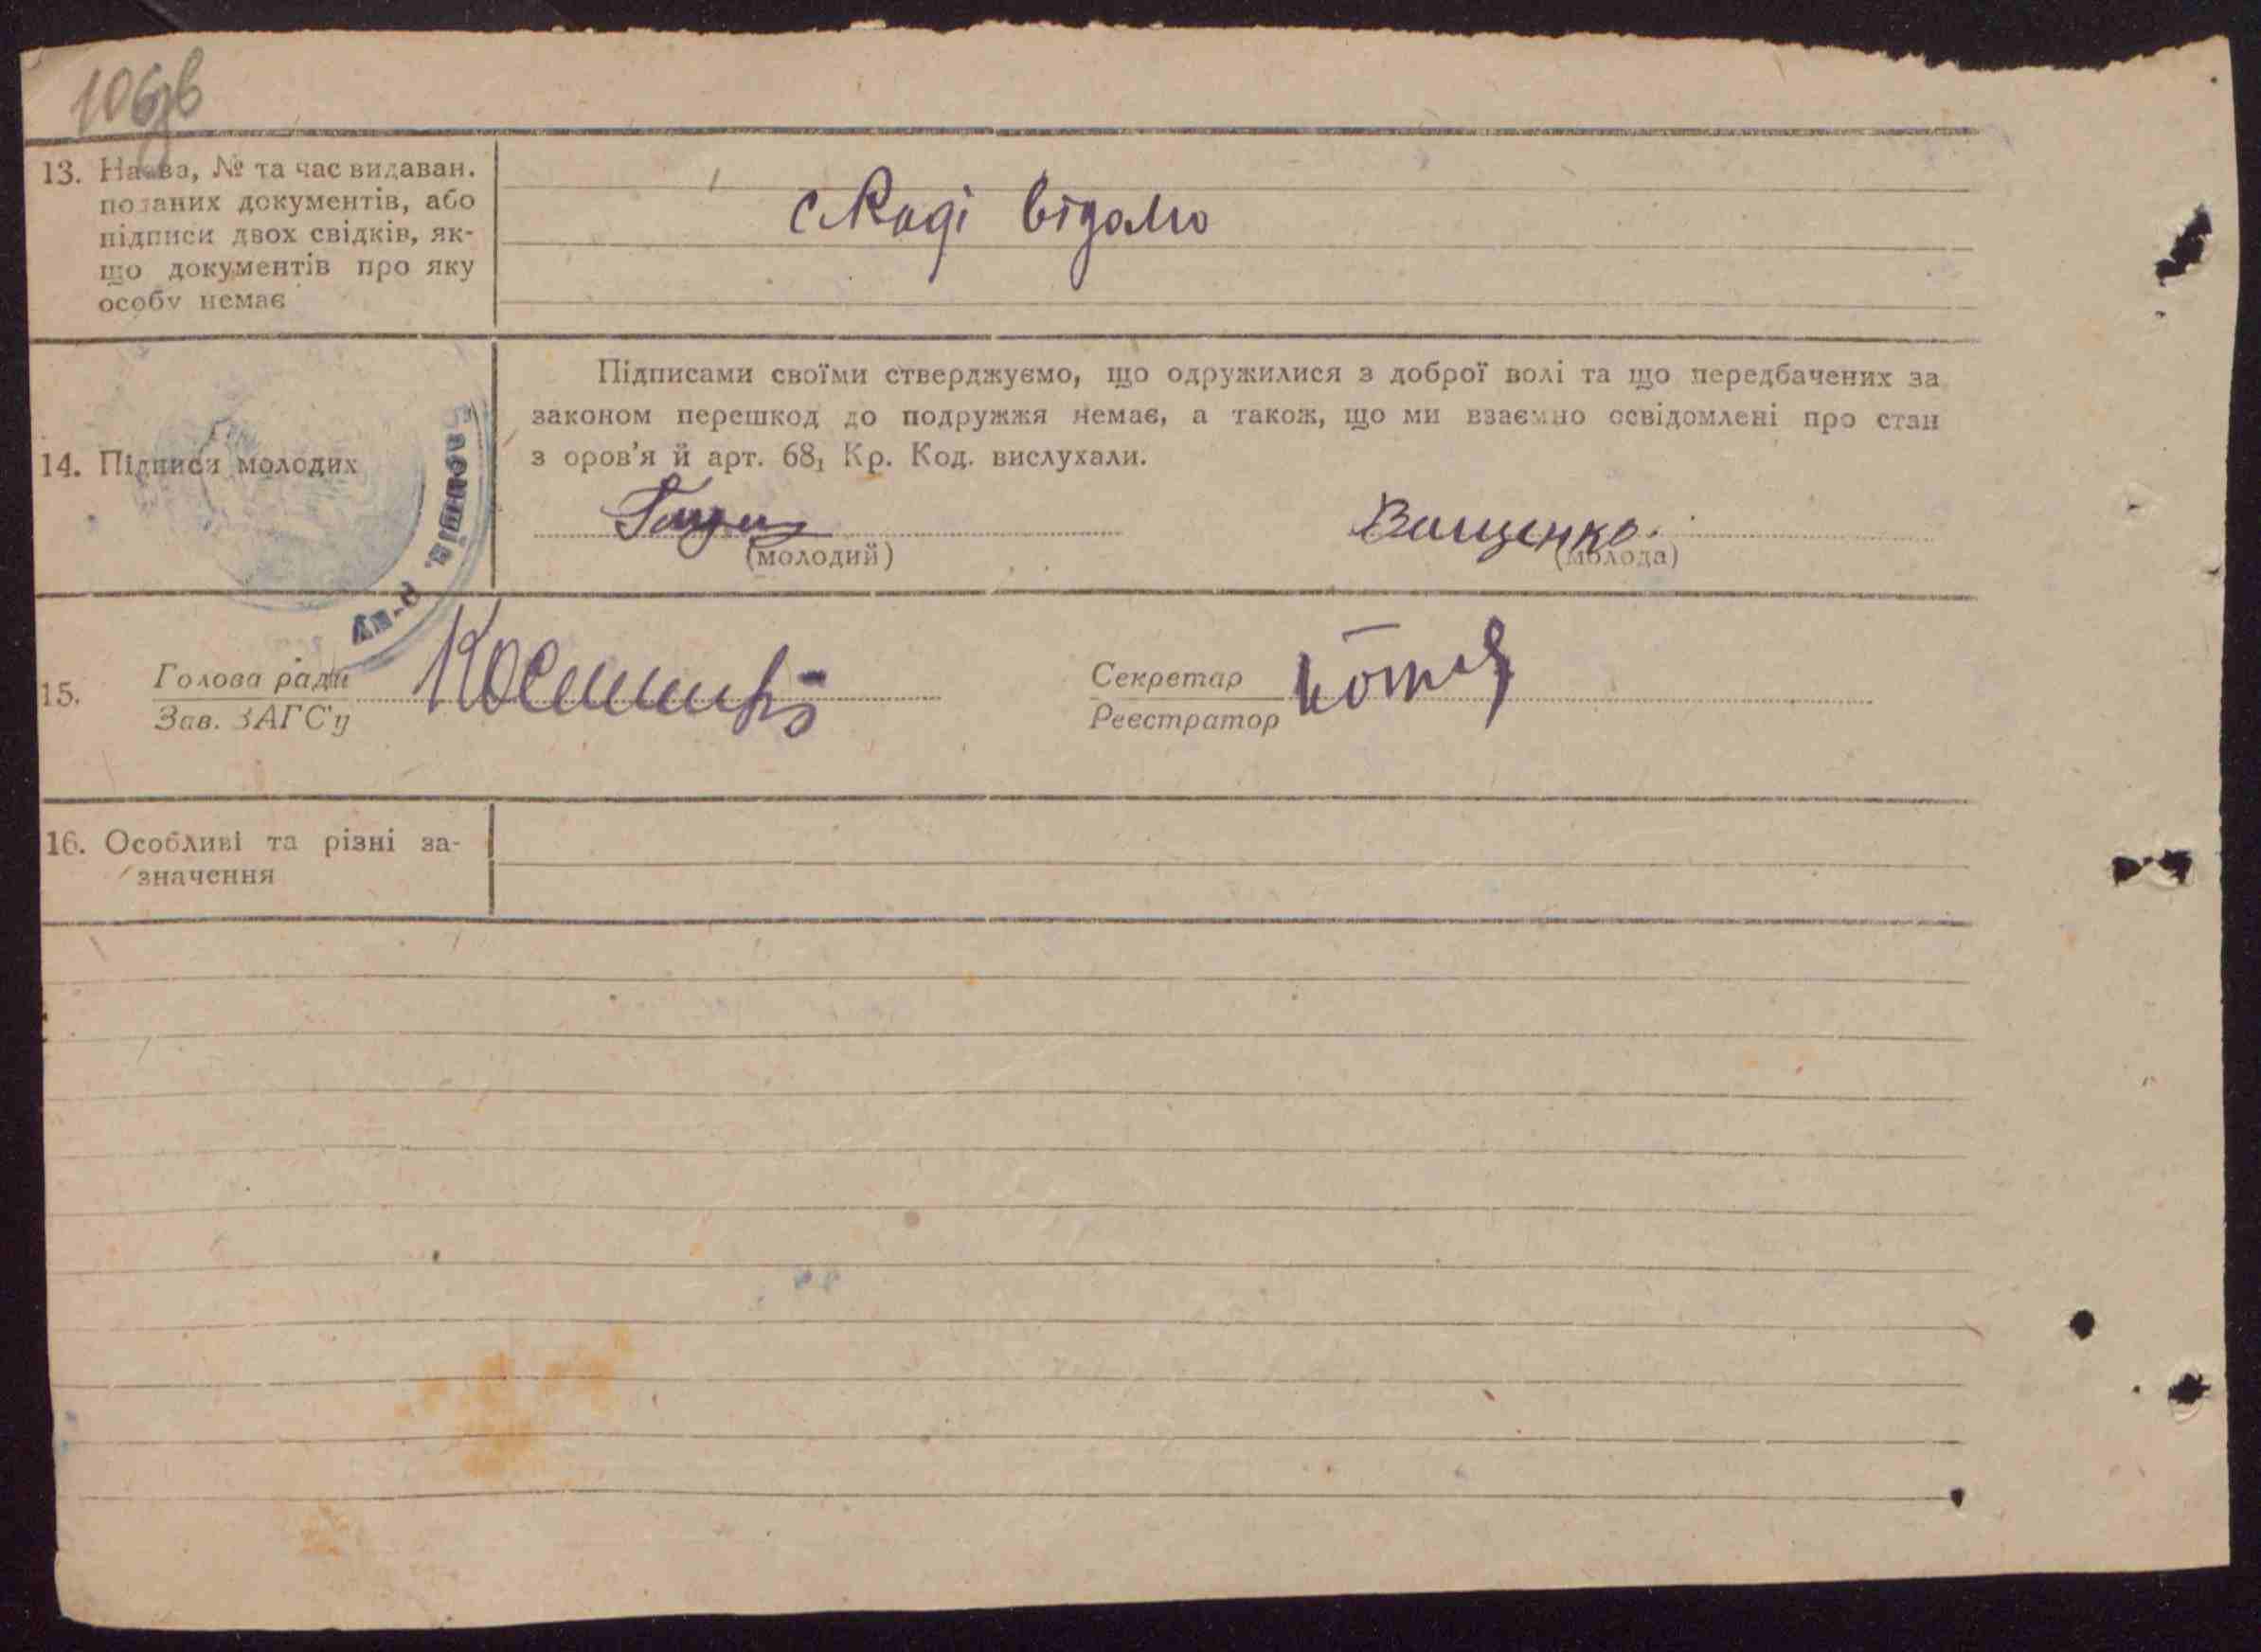 13. Назва, № та час видаван.
поданих документів, або
підписи двох свідків, як-
що документів про яку
особу немає
с Раді відомо
Підписами своїми стверджуємо, що одружилися з доброї волі та що передбачених за
законом перешкод до подружжя немає, а також, що ми взаємно освідомлені про стан
з оров’я й арт. 68₁ Кр. Код. вислухали.
14. Підписи молодих
Ващенко.
(молодий) (молода)
р-ну
15. Голова ради Секретар
Зав. ЗАГС’у Реєстратор
16. Особливі та різні за-
значення